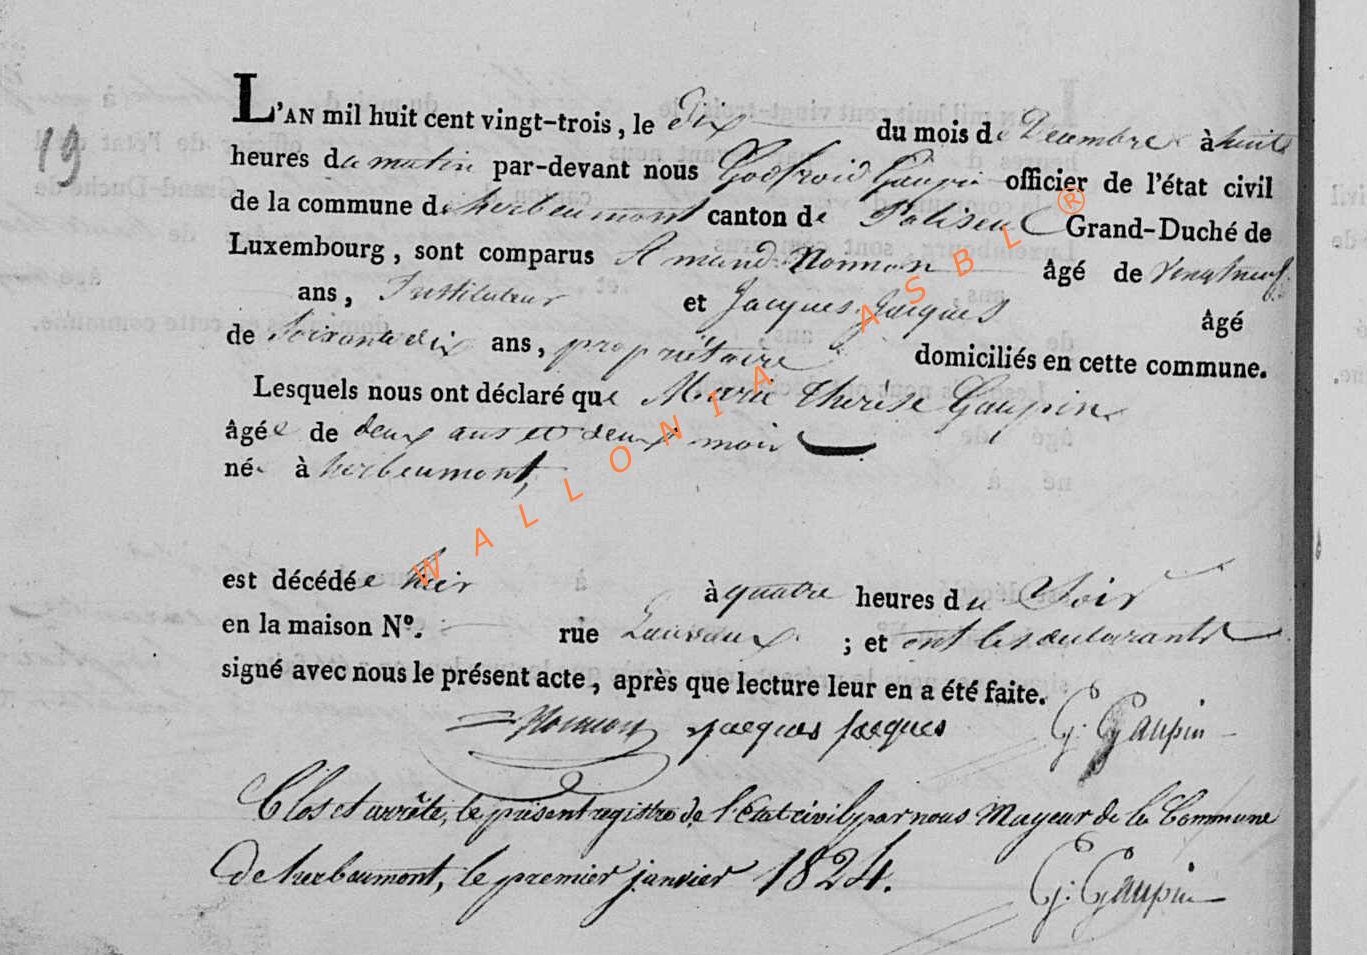 19
L'AN mil huit cent vingt-trois, le Dix du mois de Decembre à huit
heures du matin par-devant nous Godfroid Gaupin officier de l'état civil
de la commune de herbeumont canton de Paliseul Grand-Duché de
Luxembourg, sont comparus Amand Nonnon âgé de vingtneuf
ans, Instituteur et Jacques Jacques âgé
de Soixante dix ans, propriétaire domiciliés en cette commune.
Lesquels nous ont déclaré que Marie thérèse Gaupin
âgée de deux ans et deux mois
née à herbeumont,
est décédée hier à quatre heures du Soir
en la maison Nº. rue ; et ont les declarants
signé avec nous le présent acte, après que lecture leur en a été faite.
Nonnon Jacques Jacques G: Gaupin
Clos et arrêté, le présent registre de l'État civil par nous Mayeur de la Commune
de herbeumont, le premier janvier 1824.
G: Gaupin
WALLONIA ASBL ®